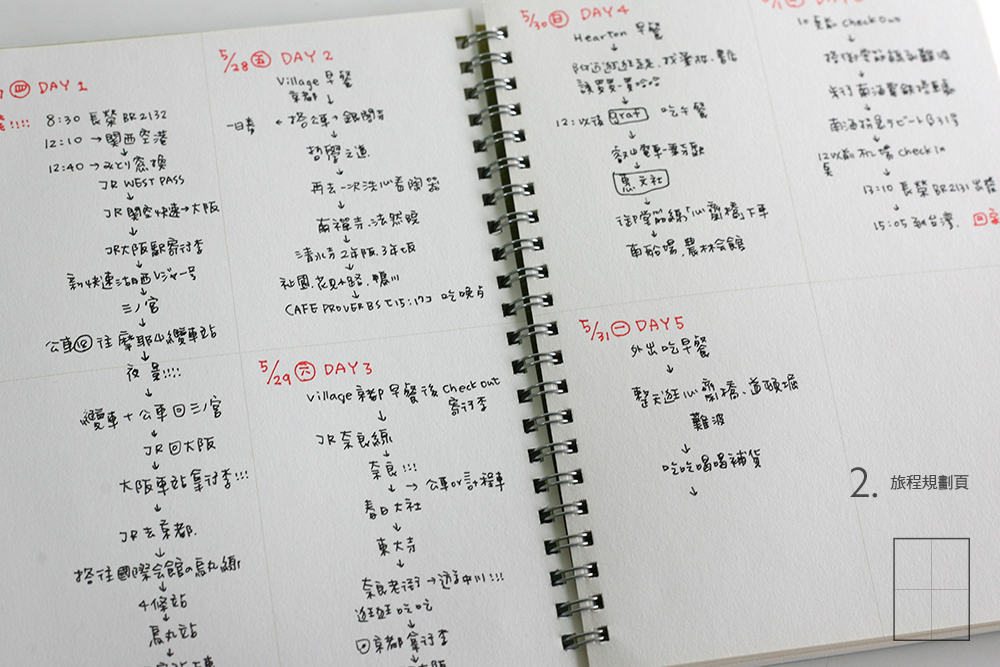 ㊃ DAY 1
8:30 長榮 BR2132
12:10 → 関西空港
12:40 → みどり窓換
JR WEST PASS
↓
JR関空快速→大阪
↓
JR大阪駅寄行李
↓
新快速
↓
三ノ宮
↓
公車⑱往摩耶山纜車站
↓
夜景!!!!
↓
纜車+公車回三ノ宮
↓
JR回大阪
↓
大阪車站拿行李!!!
↓
JR去京都.
↓
搭往國際会館の烏丸線
↓
4條站
↓
烏丸站
↓
5/28 ㊄ DAY 2
Village 早餐
京都 ↓
一日券 ← 搭公車→銀閣寺
↓
哲學之道
↓
再去一次洗心看陶器
↓
南禪寺.法然院
↓
清水寺2年阪.3年坂
↓
祇園.花見小路.鴨川
↓
CAFE PROVERBS 吃晚点
5/29 ㊅ DAY 3
Village 京都 早餐後 Check out
↓ 寄行李
JR奈良線
↓
奈良!!!
↓ → 公車or計程車
春日大社
↓
東大寺
↓
奈良老街→遊中川!!!
逛逛吃吃
↓
回京都拿行李
↓
大阪
5/30 ㊐ DAY 4
Hearton 早餐
↓
買買
12:以後 graf 吃午餐
↓
叡山電車
↓
惠文社
↓
御堂筋線「心齋橋」下車
↓
南船場.農林会館
5/31 ㊀ DAY 5
外出吃早餐
↓
整天逛心齋橋.道頓堀
難波
↓
吃吃喝喝補貨
↓
10 Check out
↓
搭御堂筋線到難波
↓
↓
南海特急ラピート β31号
↓
12以前 机場 check in
↓
13:10 長榮 BR2131 出發
↓
15:05 到台湾.
2. 旅程規劃頁